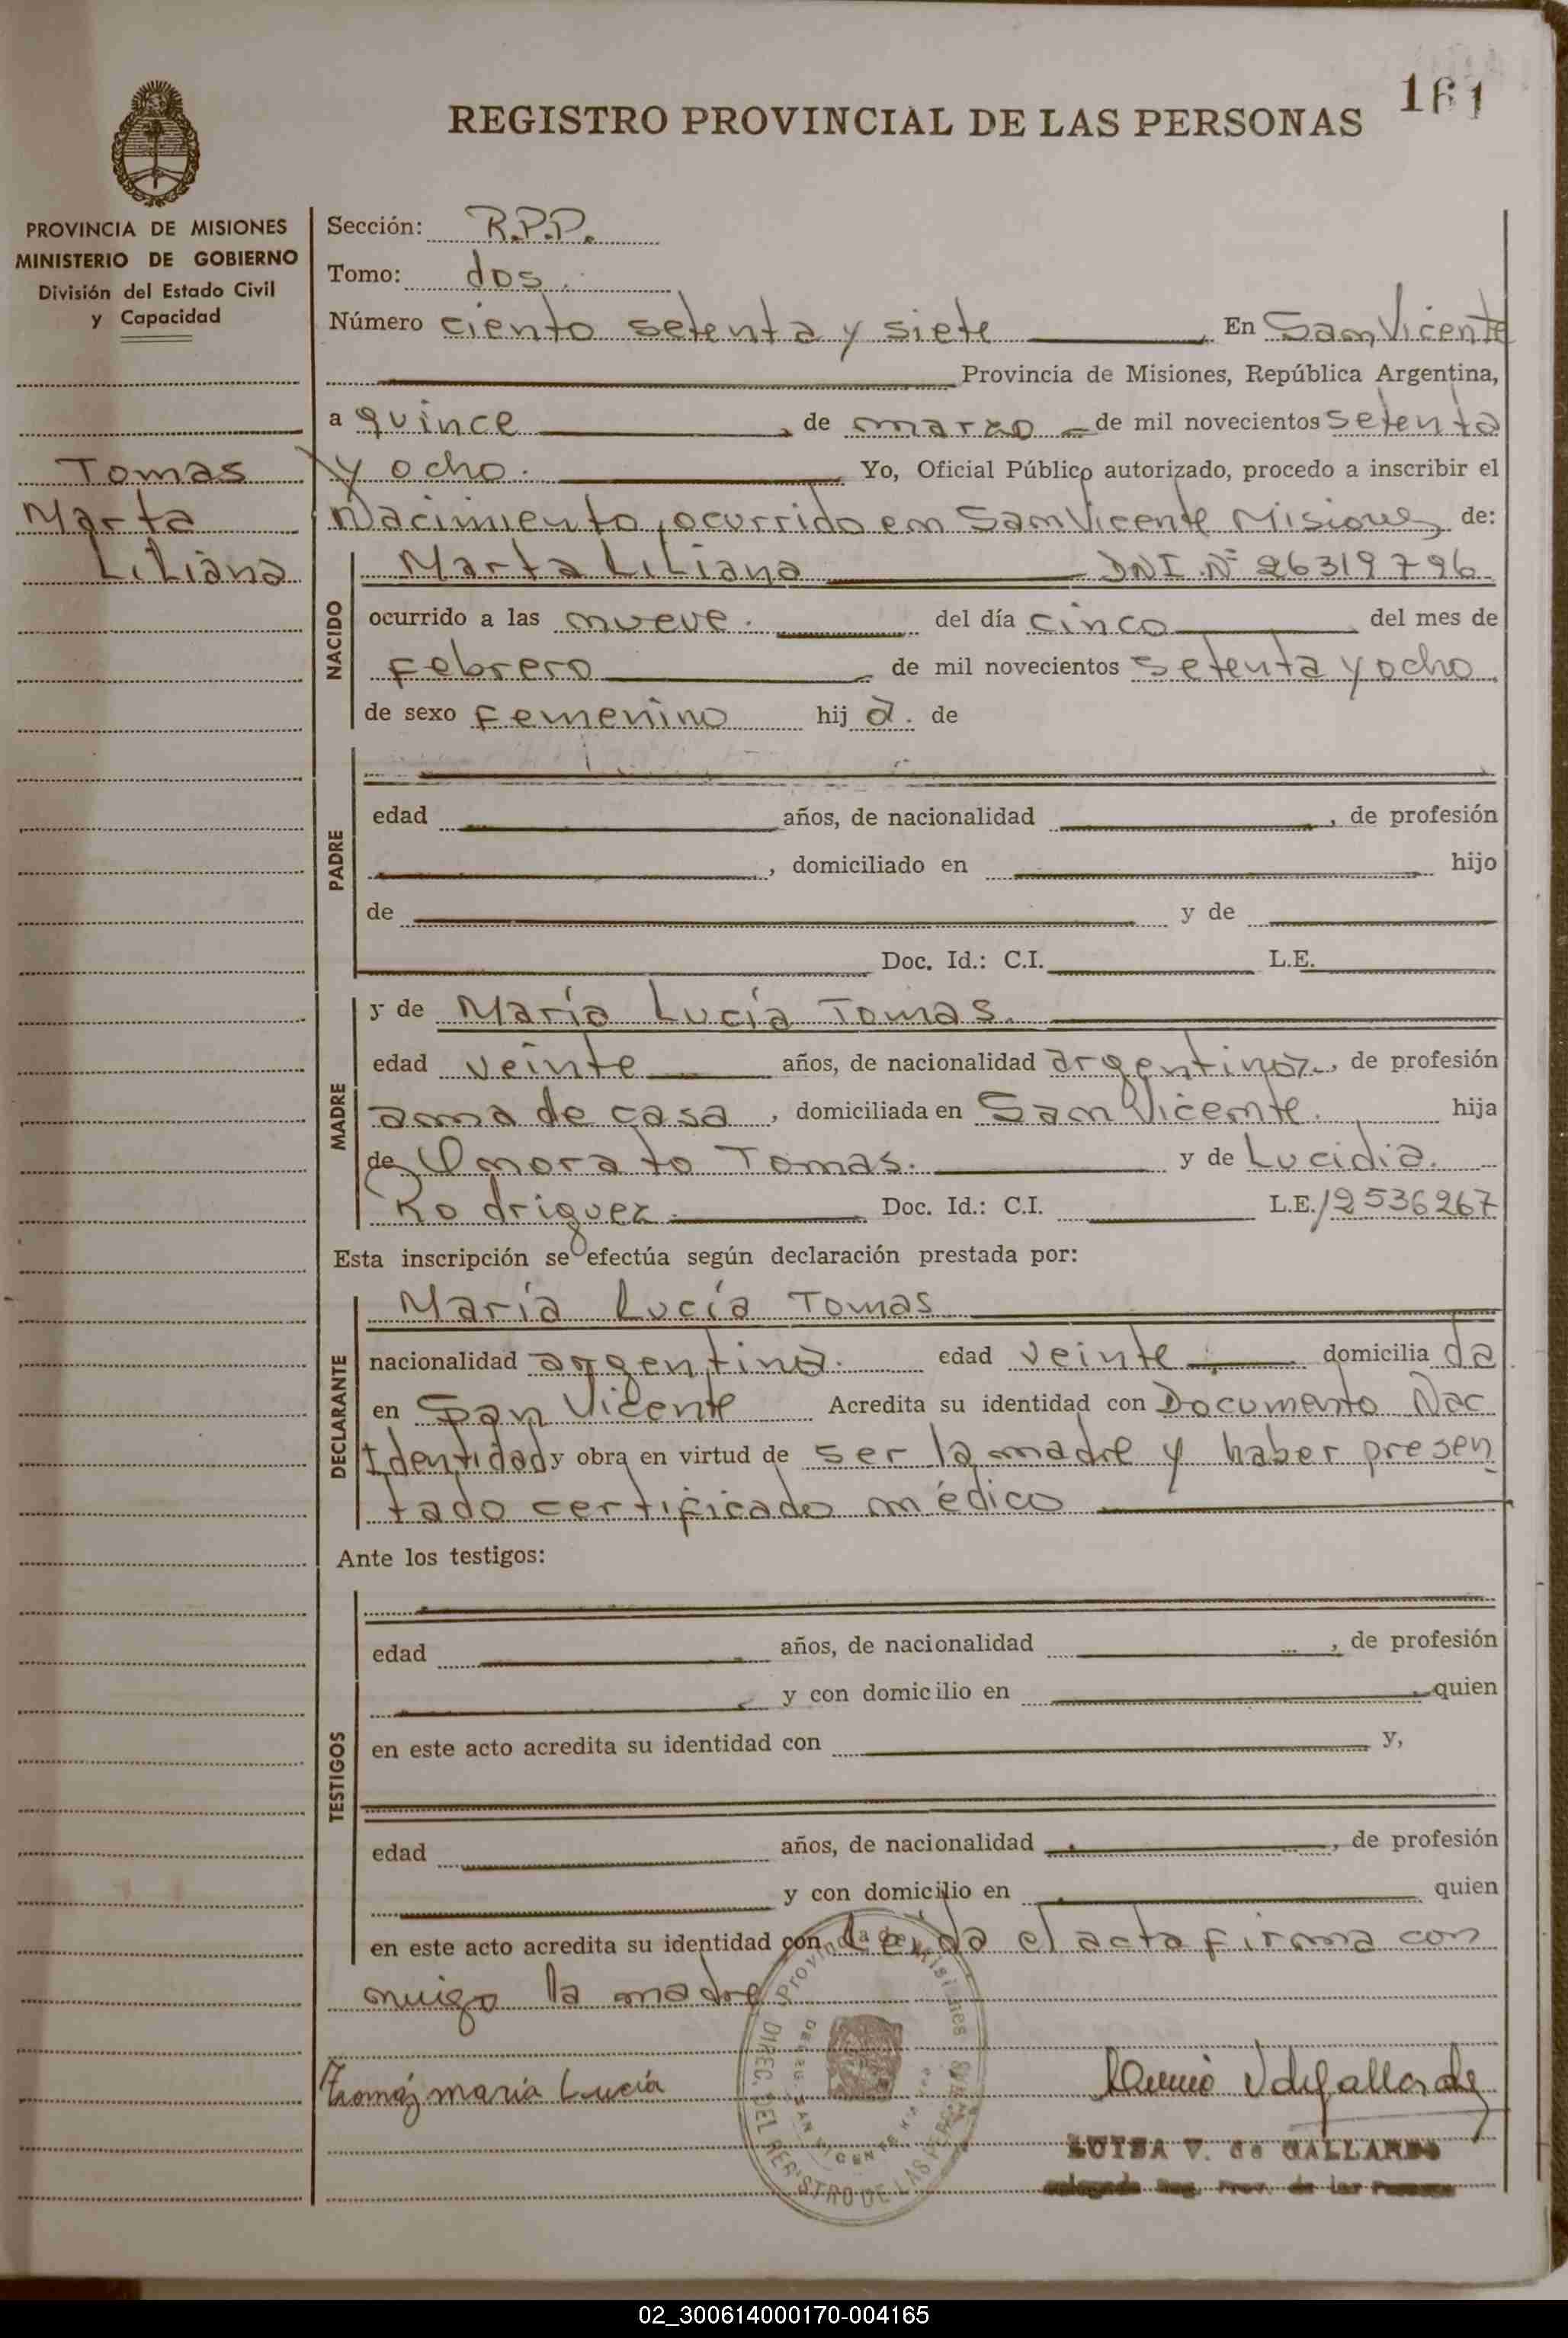 161
REGISTRO PROVINCIAL DE LAS PERSONAS
PROVINCIA DE MISIONES
MINISTERIO DE GOBIERNO
División del Estado Civil
y Capacidad
Tomas
Marta
Liliana
Sección: R.P.P.
Tomo: dos.
Número ciento setenta y siete, En San Vicente
Provincia de Misiones, República Argentina,
a quince, de marzo de mil novecientos setenta
y ocho. Yo, Oficial Público autorizado, procedo a inscribir el
Nacimiento, ocurrido en San Vicente Misiones de:
NACIDO
Marta Liliana DNI. Nº 26319796
ocurrido a las nueve. del día cinco del mes de
Febrero de mil novecientos setenta y ocho
de sexo Femenino hij a. de
PADRE
edad años, de nacionalidad , de profesión
, domiciliado en hijo
de y de
Doc. Id.: C.I. L.E.
MADRE
y de María Lucía Tomas.
edad veinte años, de nacionalidad argentina, de profesión
ama de casa, domiciliada en San Vicente. hija
de Onorato Tomas. y de Lucidia.
Rodriguez. Doc. Id.: C.I. L.E. 12536267
Esta inscripción se efectúa según declaración prestada por:
DECLARANTE
María Lucía Tomas
nacionalidad argentina. edad veinte domicilia da
en San Vicente Acredita su identidad con Documento Nac
Identidad y obra en virtud de ser la madre y haber presen
tado certificado médico
Ante los testigos:
TESTIGOS
edad años, de nacionalidad , de profesión
y con domicilio en quien
en este acto acredita su identidad con y,
edad años, de nacionalidad , de profesión
y con domicilio en quien
en este acto acredita su identidad con Leída el acta firma con
migo la madre
Provincia de Misiones
DIREC. DEL REGISTRO DE LAS PERSONAS
SAN VICENTE
Tomás maria Lucía
LUISA V. de GALLARDO
Delegada Reg. Prov. de las Personas
02_300614000170-004165